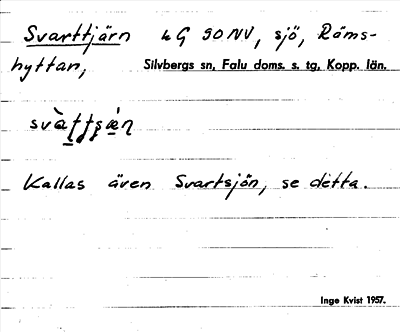 Svarttjärn 4G 90 NV, sjö, Räms-
hyttan, Silvbergs sn, Falu doms. s. tg, Kopp. län.
Kallas även Svartsjön, se detta.
Inge Kvist 1957.